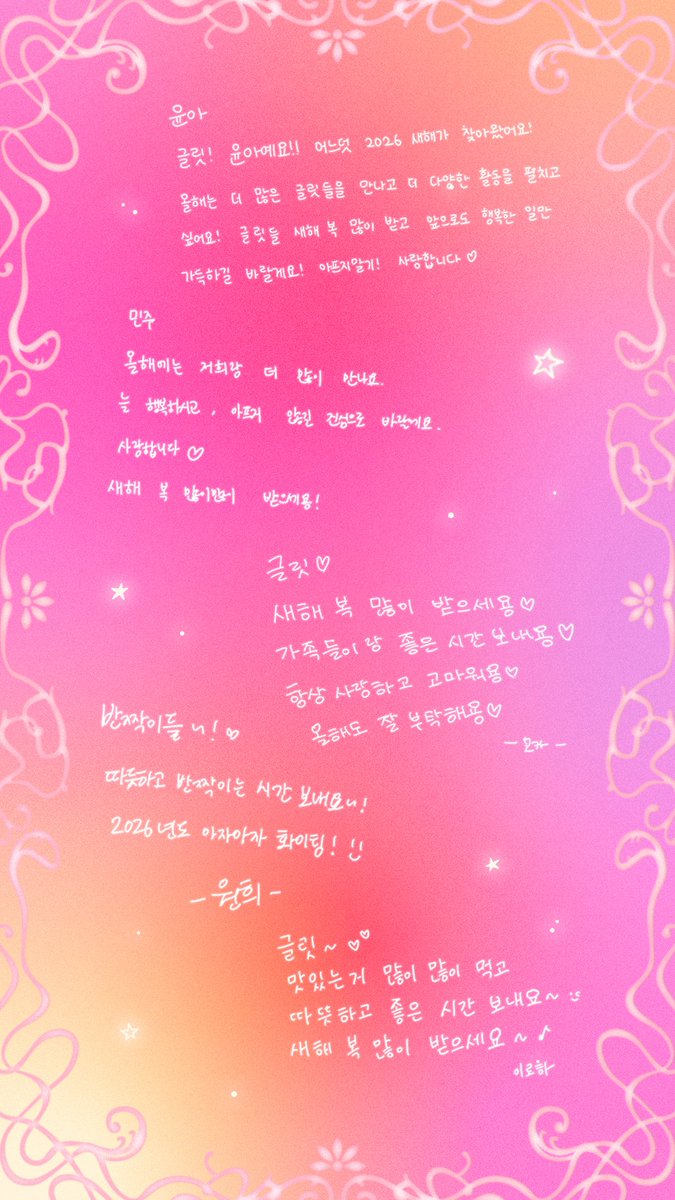 윤아
글릿! 윤아예요!! 어느덧 2026 새해가 찾아왔어요!
올해는 더 많은 글릿들을 만나고 더 다양한 활동을 펼치고
싶어요! 글릿들 새해 복 많이 받고 앞으로도 행복한 일만
가득하길 바랄게요! 아프지말기! 사랑합니다♡
민주
올해에는 저희랑 더 많이 만나요.
늘 행복하시고, 아프지 않길 진심으로 바랄게요.
사랑합니다♡
새해 복 많이많이 받으세용!
글릿♡
새해 복 많이 받으세용♡
가족들이랑 좋은 시간 보내용♡
항상 사랑하고 고마워용♡
올해도 잘 부탁해용♡
- 모카 -
반짝이들~!♡
따뜻하고 반짝이는 시간 보내요~!
2026년도 아자아자 화이팅! :)
- 원희 -
글릿~ ♡♡
맛있는거 많이 많이 먹고
따뜻하고 좋은 시간 보내요~ :)
새해 복 많이 받으세요~♪
이로하